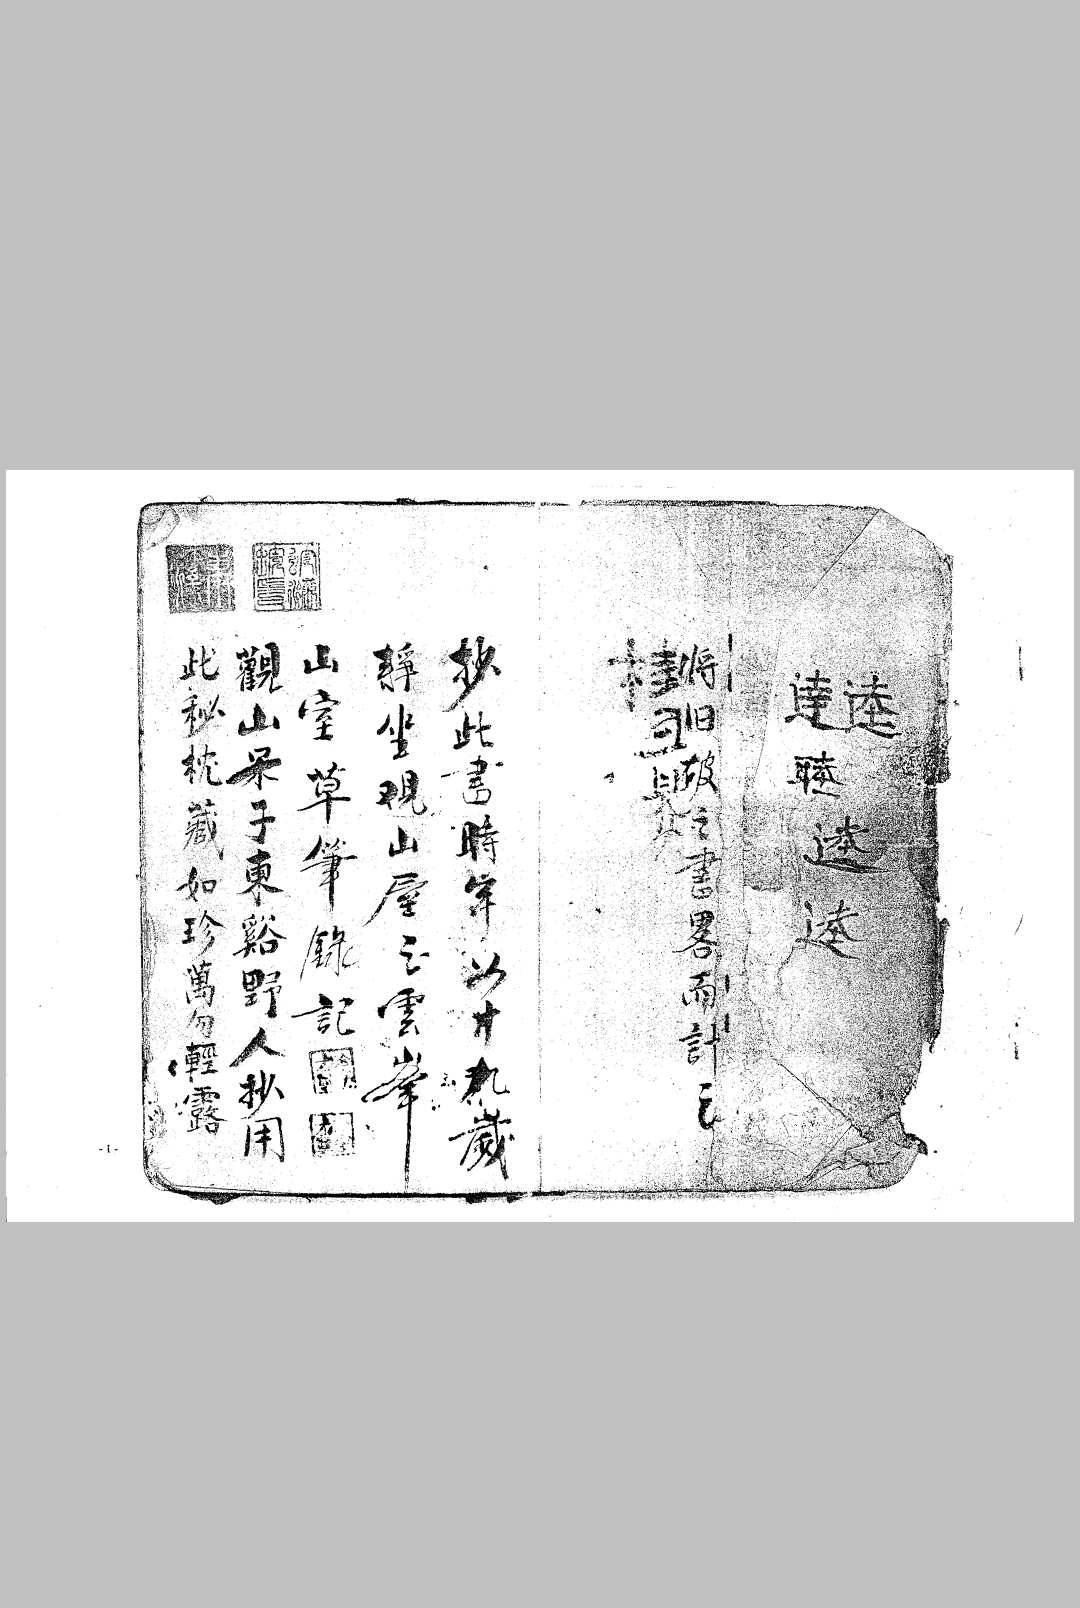 逵
達 睦 逵 逵
將旧破之書畧而計之
抄此書時年以廿九歲
靜坐观山屋之雲峯
山室草筆錄記
觀山呆子東谿野人抄用
此秘枕藏如珍萬勿輕露
-1-